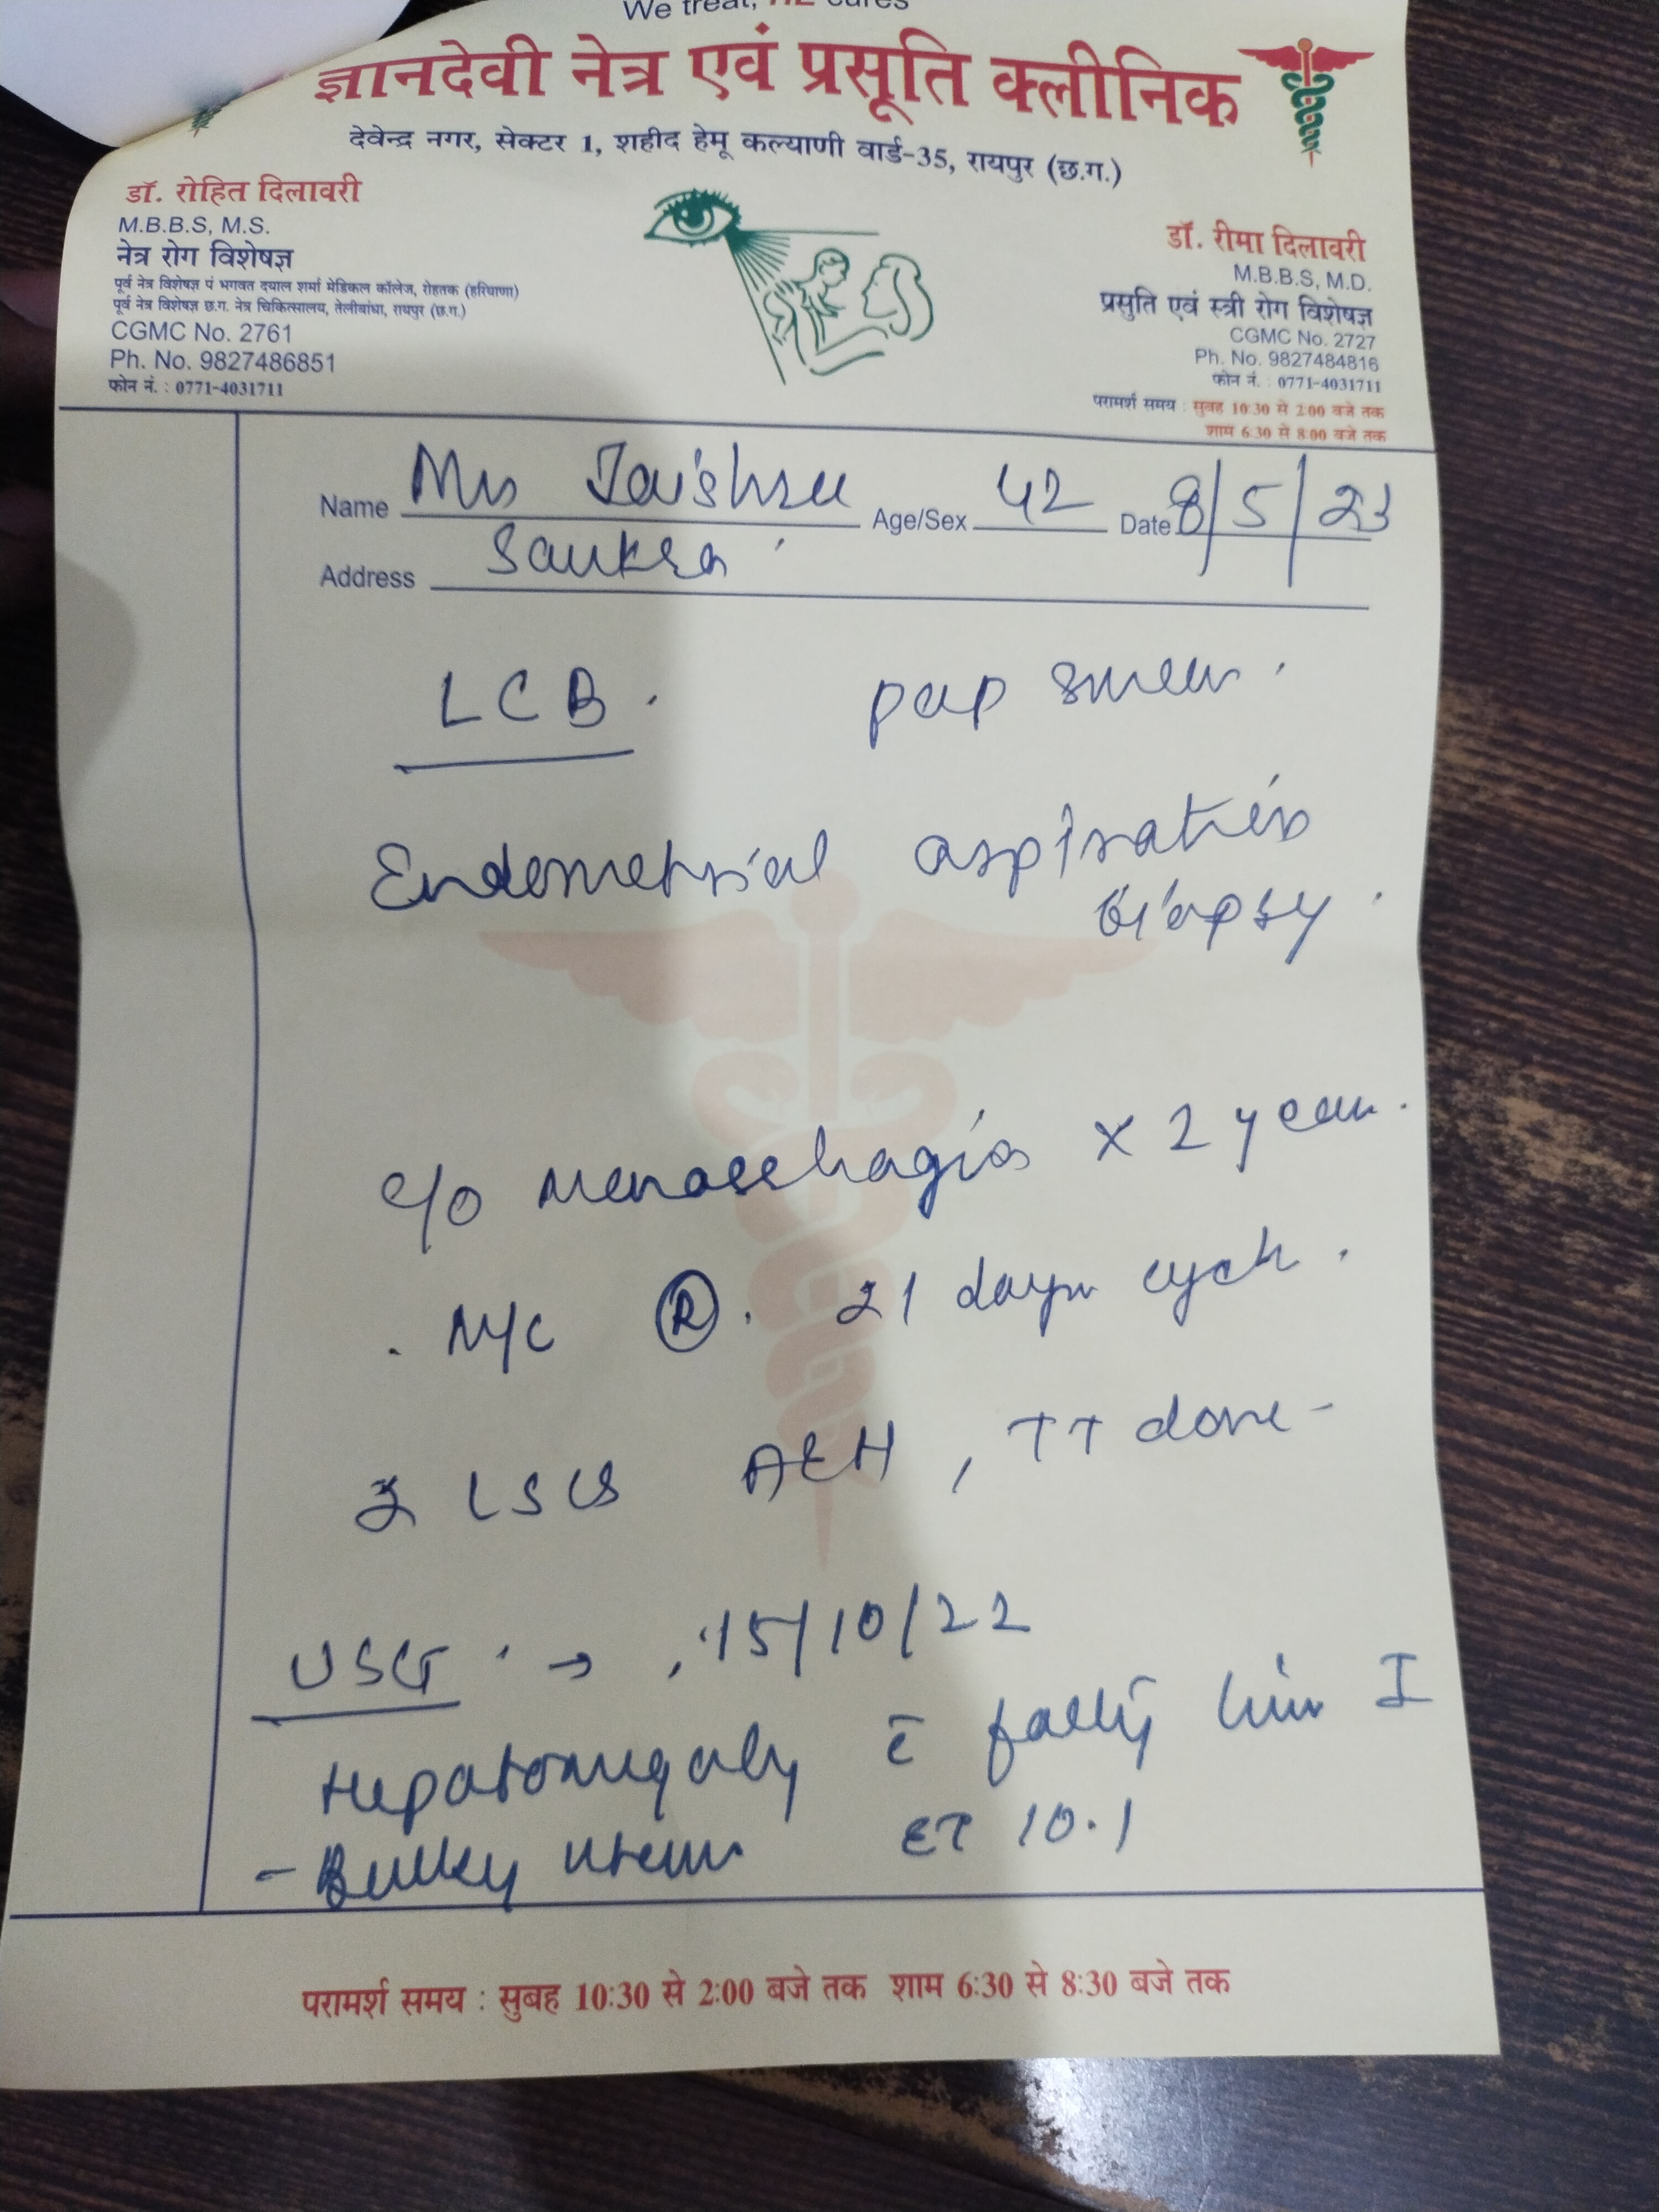 We treat, HE cures
ज्ञानदेवी नेत्र एवं प्रसूति क्लीनिक
देवेन्द्र नगर, सेक्टर 1, शहीद हेमू कल्याणी वार्ड-35, रायपुर (छ.ग.)
डॉ. रोहित दिलावरी
M.B.B.S, M.S.
नेत्र रोग विशेषज्ञ
पूर्व नेत्र विशेषज्ञ पं भगवत दयाल शर्मा मेडिकल कॉलेज, रोहतक (हरियाणा)
पूर्व नेत्र विशेषज्ञ छ.ग. नेत्र चिकित्सालय, तेलीबांधा, रायपुर (छ.ग.)
CGMC No. 2761
Ph. No. 9827486851
फोन नं. : 0771-4031711
डॉ. रीमा दिलावरी
M.B.B.S, M.D.
प्रसुति एवं स्त्री रोग विशेषज्ञ
CGMC No. 2727
Ph. No. 9827484816
फोन नं. : 0771-4031711
परामर्श समय : सुबह 10:30 से 2:00 बजे तक
शाम 6:30 से 8:00 बजे तक
Name Mrs Jaishree Age/Sex 42 Date 8/5/23
Address
LCB. pap smear.
Endometrial aspiration
biopsy.
c/o menorrhagia x 2 year.
. M/C (R). 21 days cycle.
2 LSCS A&H, TT done-
USG → 15/10/22
Hepatomegaly c̄ fatty liver I
- Bulky uterus ET 10.1
परामर्श समय : सुबह 10:30 से 2:00 बजे तक शाम 6:30 से 8:30 बजे तक